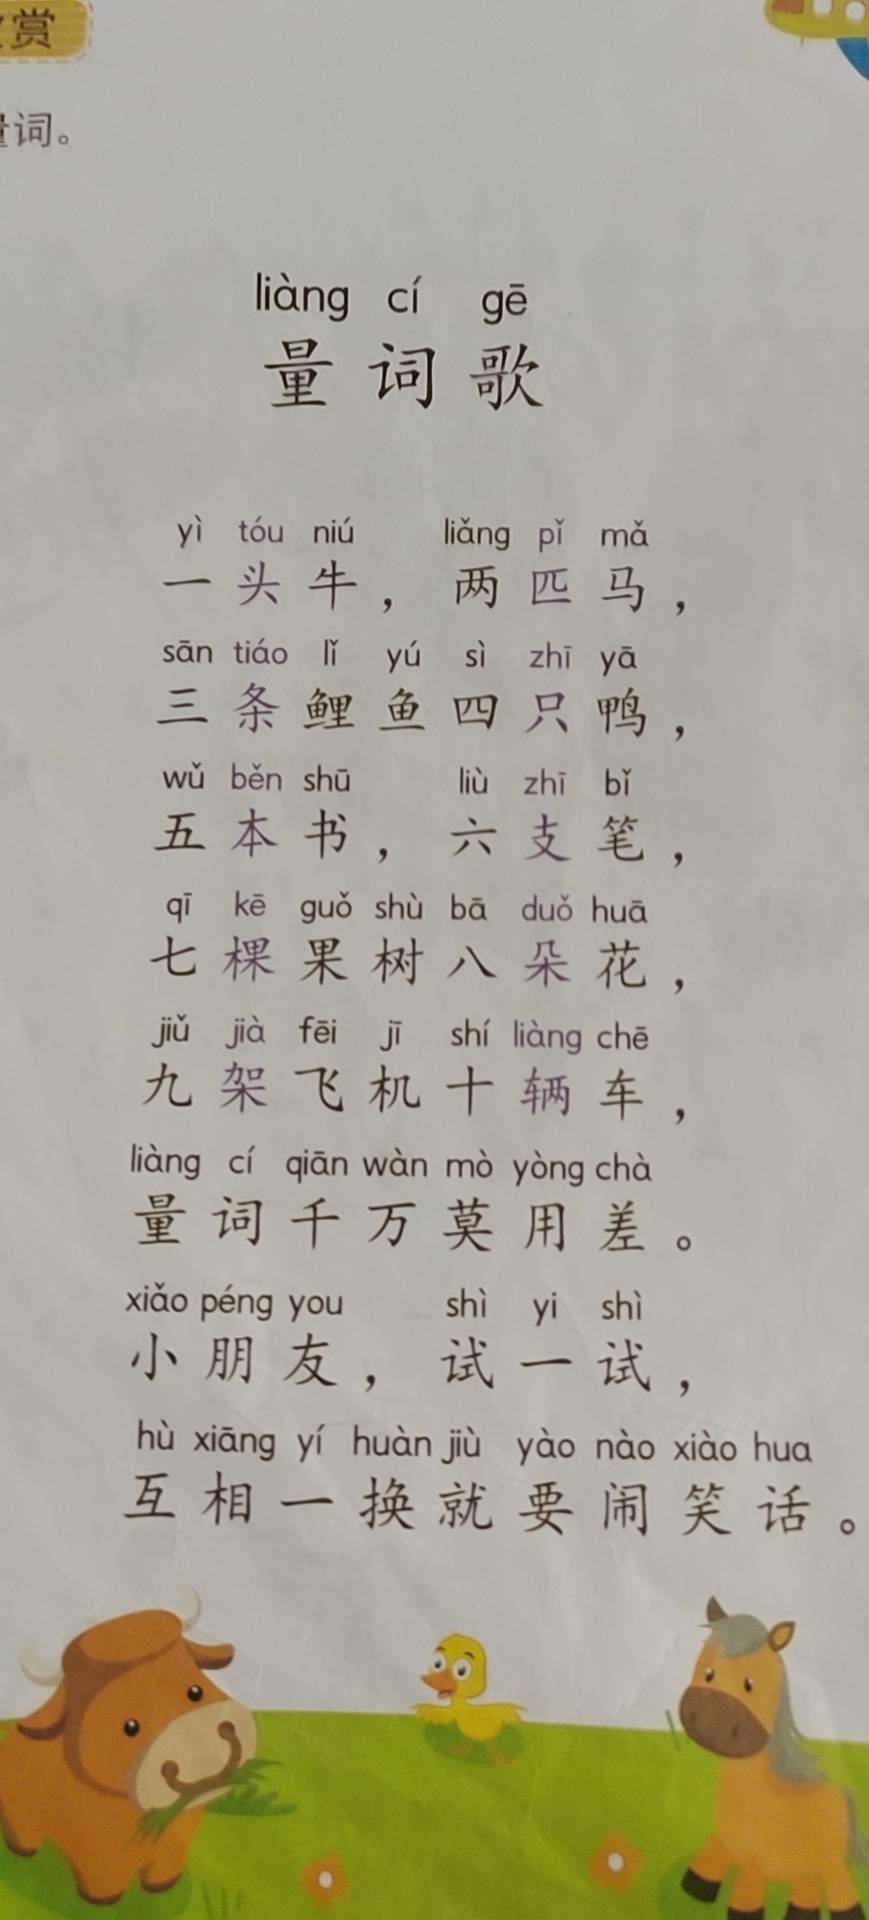 赏
词。
liàng cí gē
量词歌
yì tóu niú liǎng pǐ mǎ
一头牛，两匹马，
sān tiáo lǐ yú sì zhī yā
三条鲤鱼四只鸭，
wǔ běn shū liù zhī bǐ
五本书，六支笔，
qī kē guǒ shù bā duǒ huā
七棵果树八朵花，
jiǔ jià fēi jī shí liàng chē
九架飞机十辆车，
liàng cí qiān wàn mò yòng chà
量词千万莫用差。
xiǎo péng you shì yi shì
小朋友，试一试，
hù xiāng yí huàn jiù yào nào xiào hua
互相一换就要闹笑话。